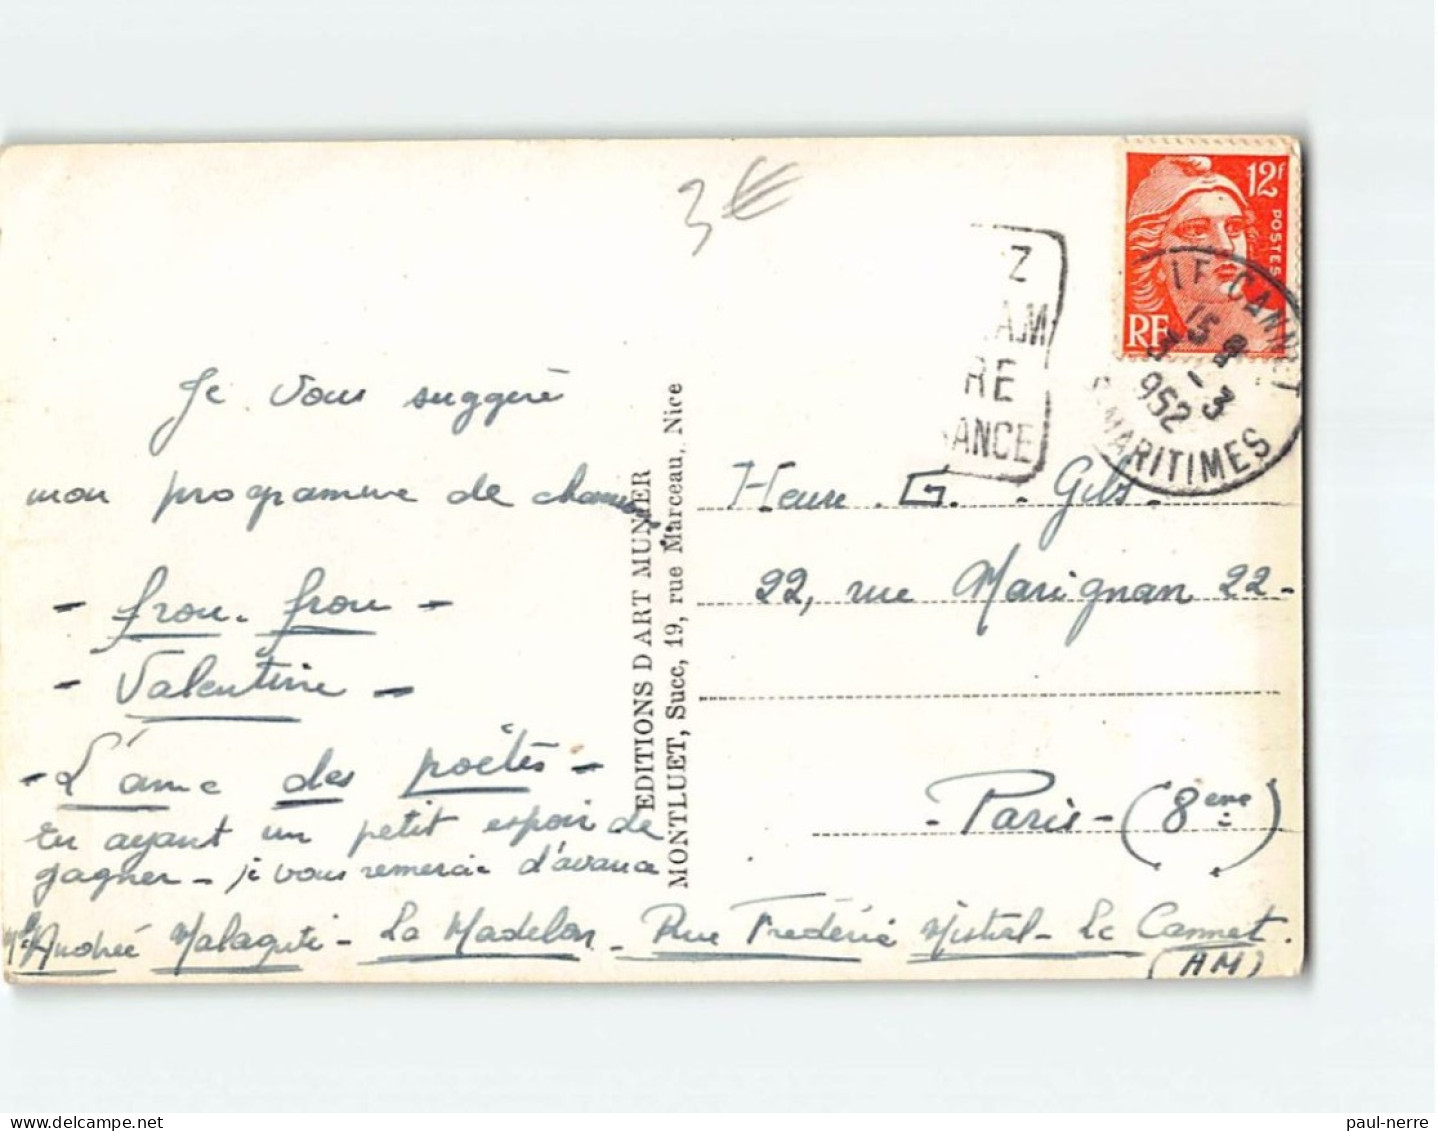 3€
12f
POSTES
RF
LE CANNET
15
3 - 3
1952
MARITIMES
Z
AM
RE
ANCE
Je vous suggère
mon programme de
- frou. frou -
- Valentine -
- L'âme des poètes -
En ayant un petit espoir de
gagner - je vous remercie d'avance
Andrée - La Madelon - Rue Frédéric Mistral - Le Cannet.
(AM)
EDITIONS D ART MUNIER
MONTLUET, Succ, 19, rue Marceau, Nice
G.
22, rue Marignan 22 -
- Paris - (8ème)
paul-nerre